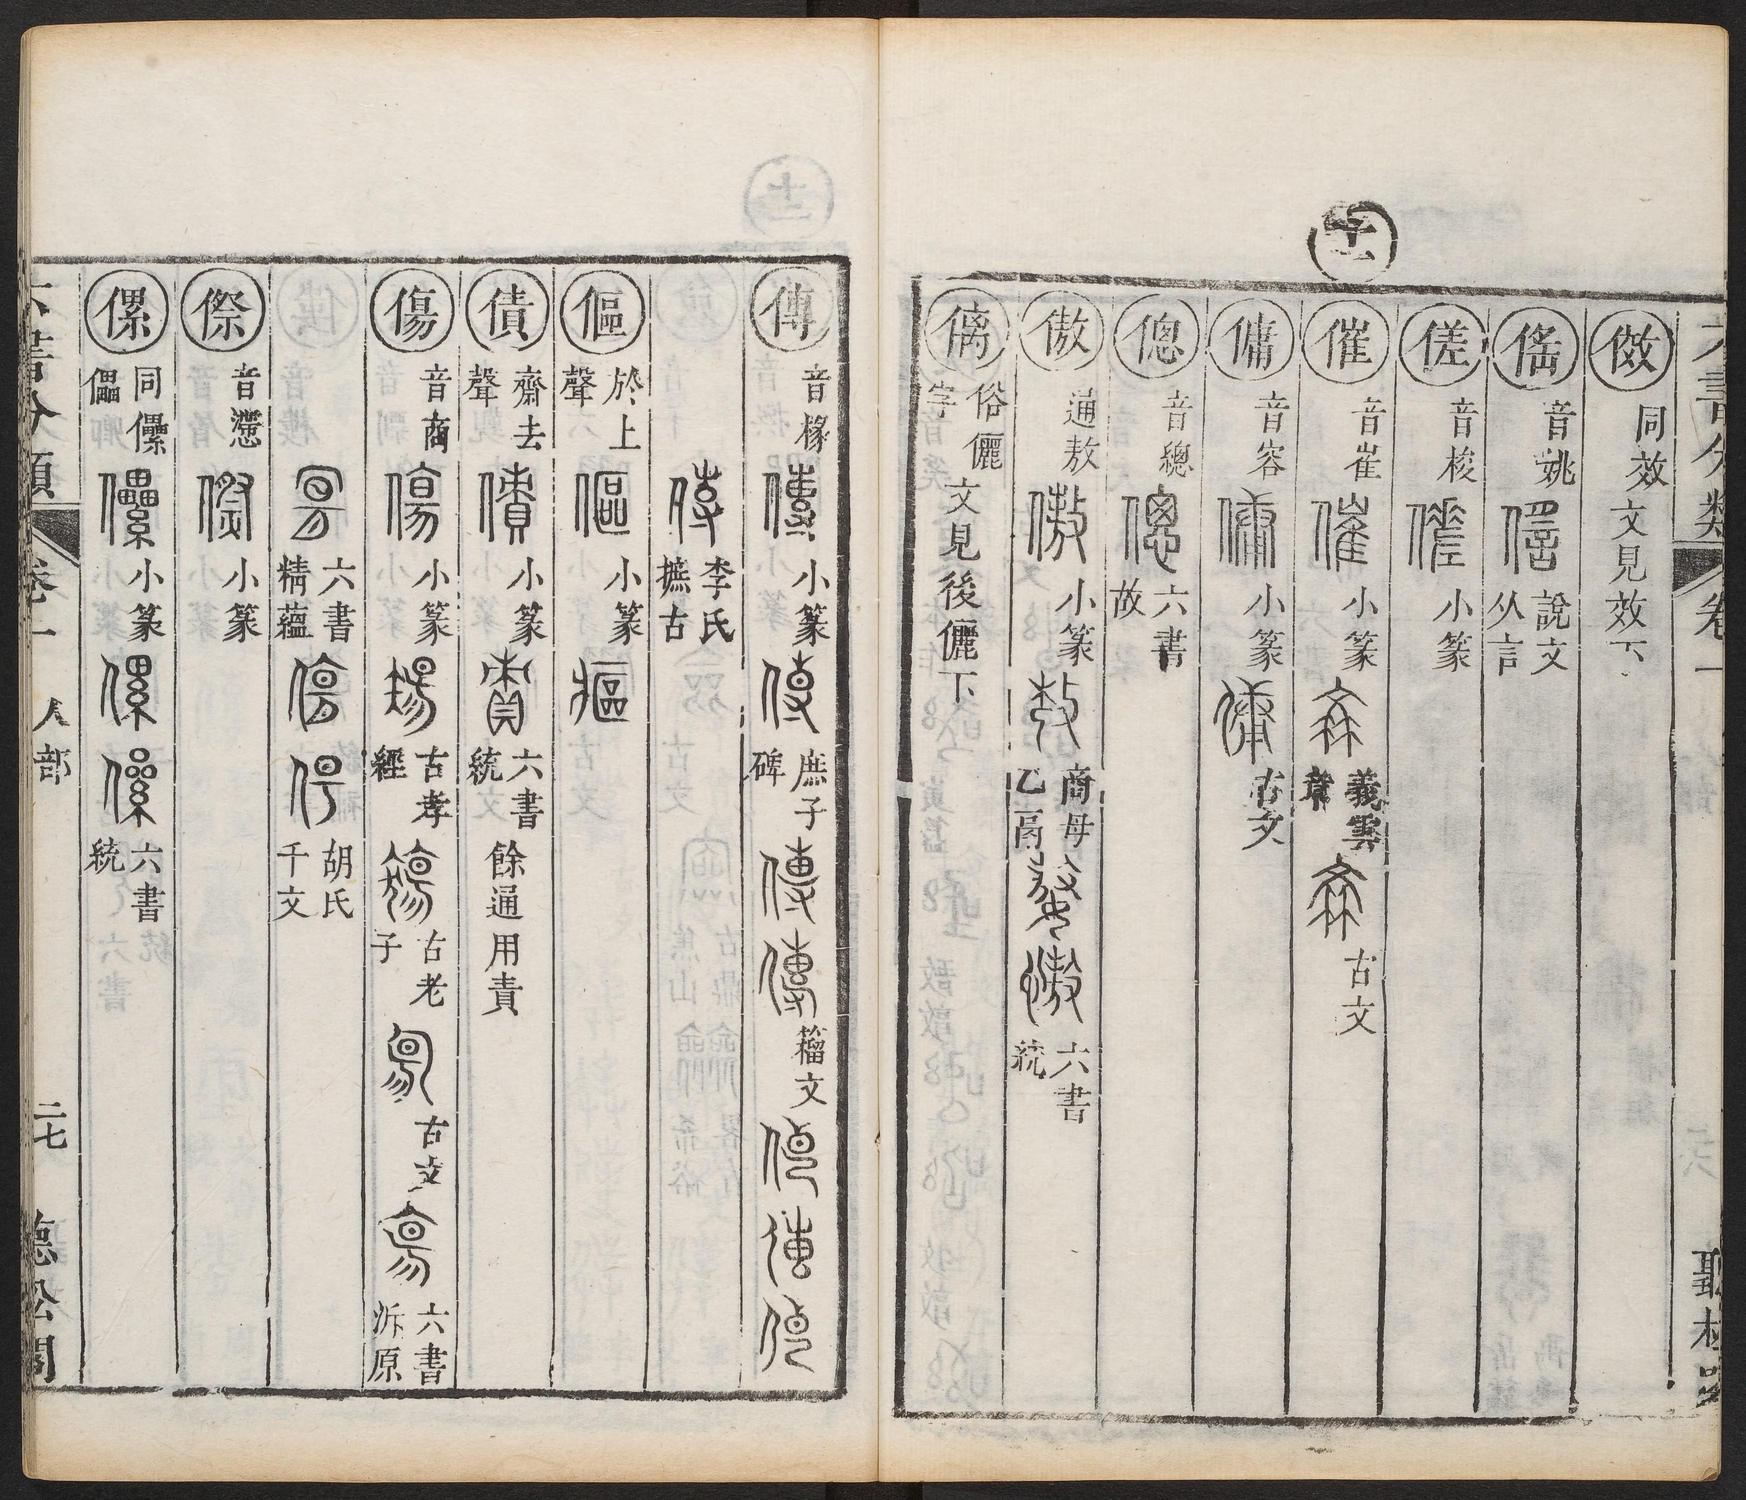 六書分類 卷一
聽松閣
傚 同效 文見效下
傜 音姚 說文 从言
傞 音梭 小篆
催 音崔 小篆 義雲章 古文
傭 音容 小篆 古文
傯 音總 六書故
傲 通敖 小篆 商母乙鬲 六書統
𠌯 俗儷字 文見後儷下
傳 音椽 小篆 庶子碑 籀文
李氏摭古
傴 於上聲 小篆
債 齋去聲 小篆 六書統 餘通用責
傷 音商 小篆 古孝經 古老子 古文 六書泝原
六書精蘊 胡氏千文
傺 音懘 小篆
傫 同儽儡 小篆 六書統
六書分類 卷一 人部 二七 聽松閣